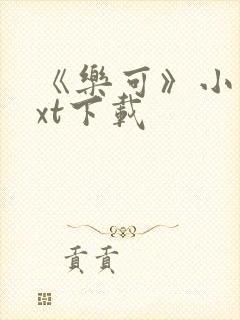 《樂可》小
xt下載
貢貢